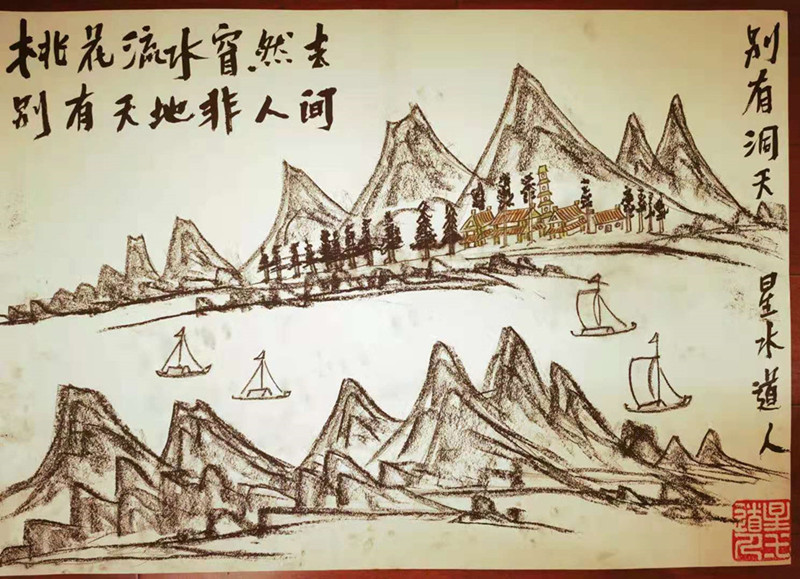 桃花流水窅然去
别有天地非人间
别有洞天
星水道人
星水道人